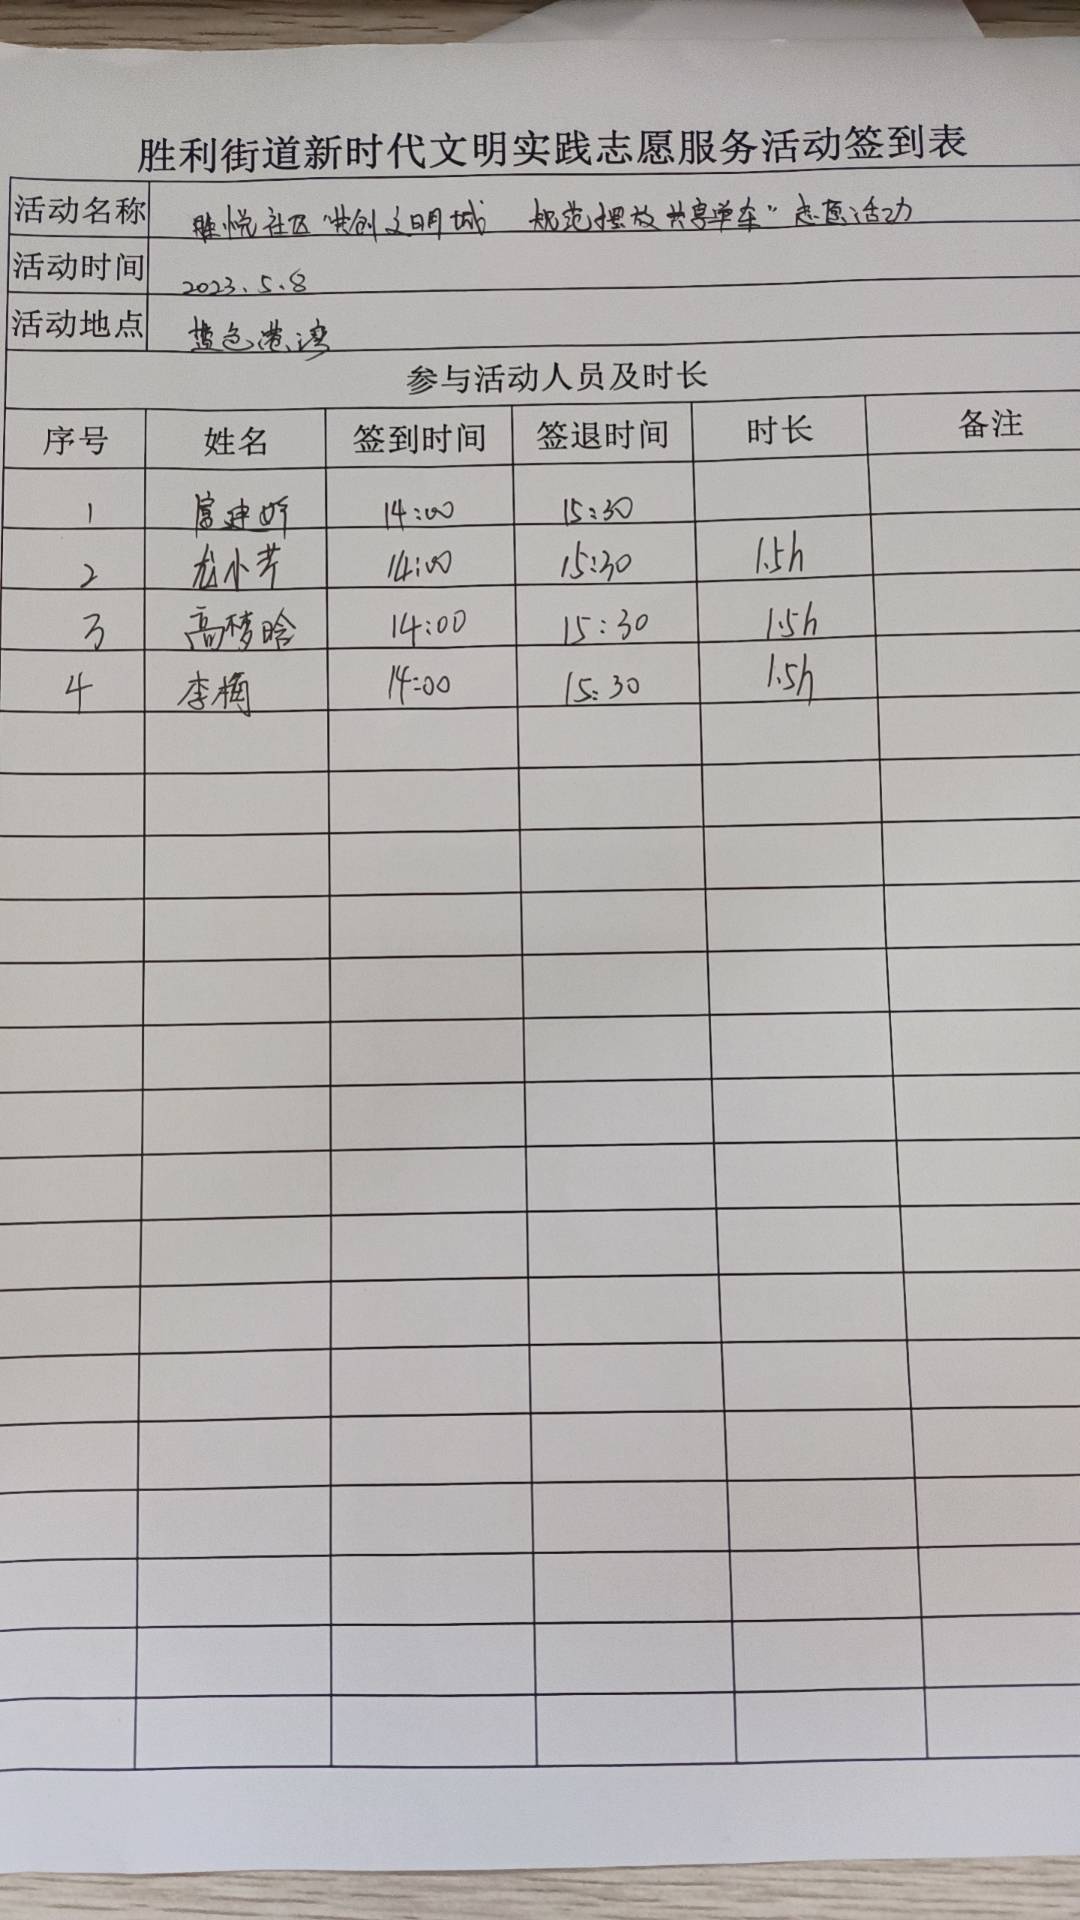 胜利街道新时代文明实践志愿服务活动签到表
活动名称 胜悦社区"共创文明城 规范摆放共享单车"志愿活动
活动时间 2023.5.8
活动地点 蓝色港湾
参与活动人员及时长
序号 姓名 签到时间 签退时间 时长 备注
1 14:00 15:30
2 小芳 14:00 15:30 1.5h
3 高梦晗 14:00 15:30 1.5h
4 李梅 14:00 15:30 1.5h